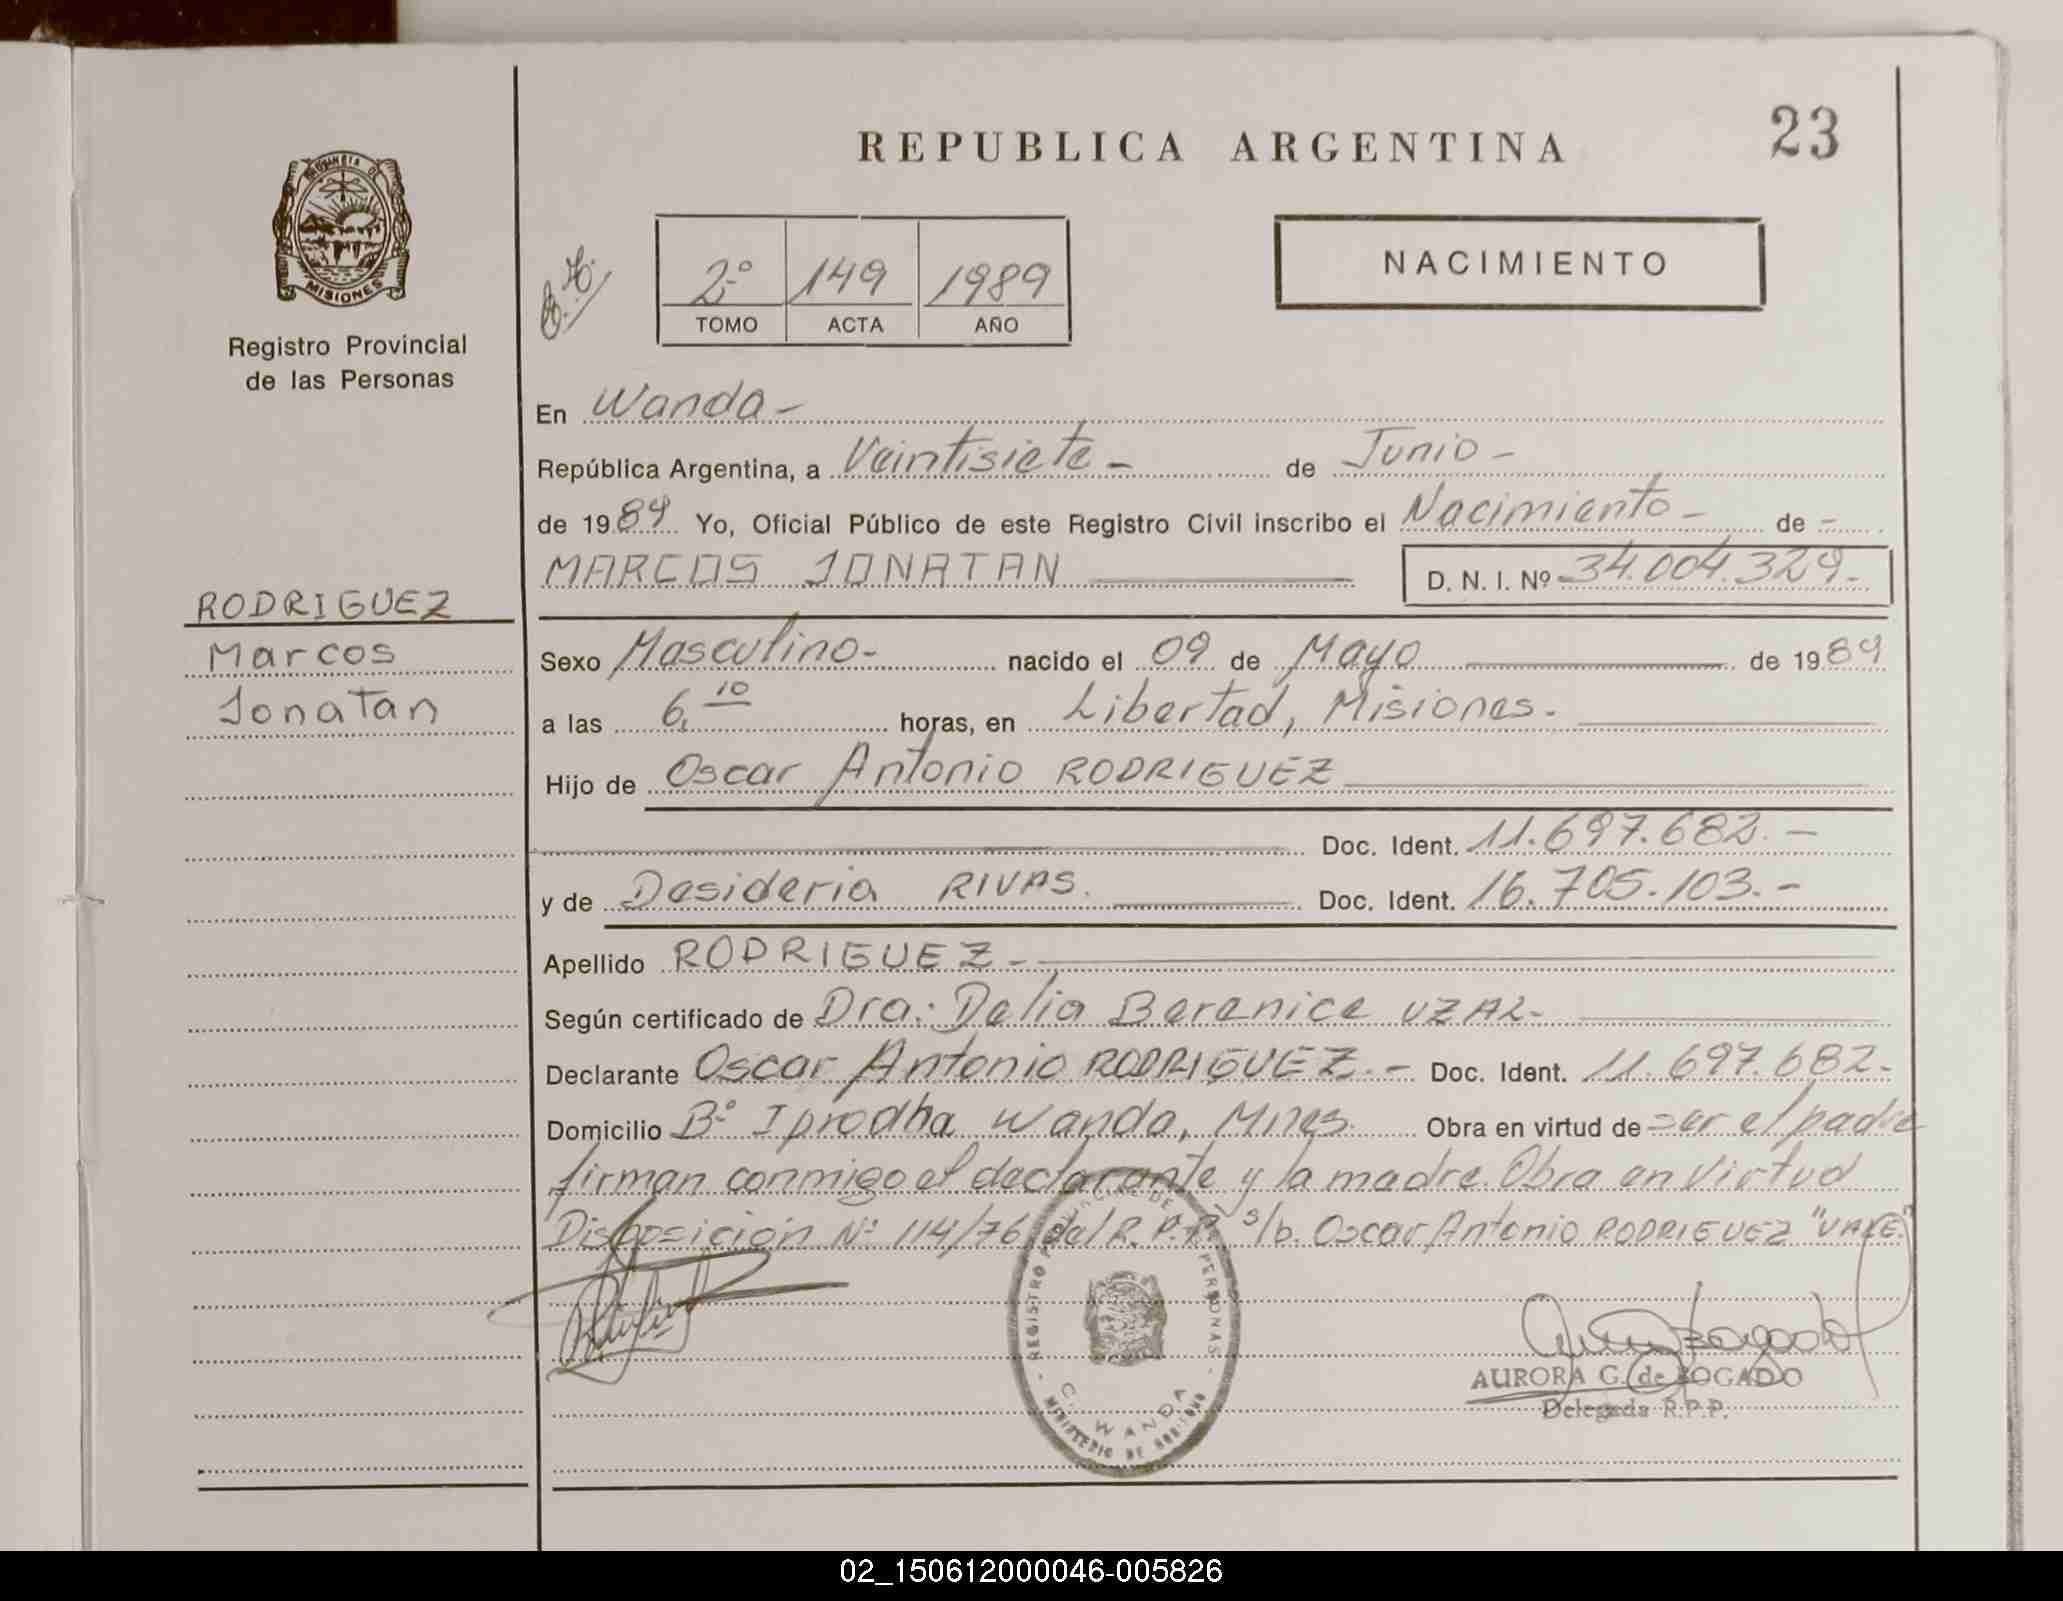 REPUBLICA ARGENTINA
23
PROVINCIA DE
MISIONES
Registro Provincial
de las Personas
2º 149 1989
TOMO ACTA AÑO
NACIMIENTO
En Wanda -
República Argentina, a Veintisiete - de Junio -
de 1989 Yo, Oficial Público de este Registro Civil inscribo el Nacimiento - de -
MARCOS JONATAN D. N. I. Nº 34.004.329.-
RODRIGUEZ
Marcos
Jonatan
Sexo Masculino - nacido el 09 de Mayo de 1989
a las 6,10 horas, en Libertad, Misiones.
Hijo de Oscar Antonio RODRIGUEZ
Doc. Ident. 11.697.682. -
y de Desideria RIVAS. Doc. Ident. 16.705.103.-
Apellido RODRIGUEZ -
Según certificado de Dra: Delia Berenice UZAL-
Declarante Oscar Antonio RODRIGUEZ.- Doc. Ident. 11.697.682-
Domicilio Bº Iprodha Wanda, Mnes. Obra en virtud de ser el padre
firman conmigo el declarante y la madre. Obra en Virtud
Disposición Nº 114/76 del R.P.P. s/b. Oscar Antonio RODRIGUEZ "VALE."
REGISTRO PROVINCIAL DE LAS PERSONAS
C. WANDA
MINISTERIO DE GOBIERNO
AURORA G. de BOGADO
Delegada R.P.P.
02_150612000046-005826